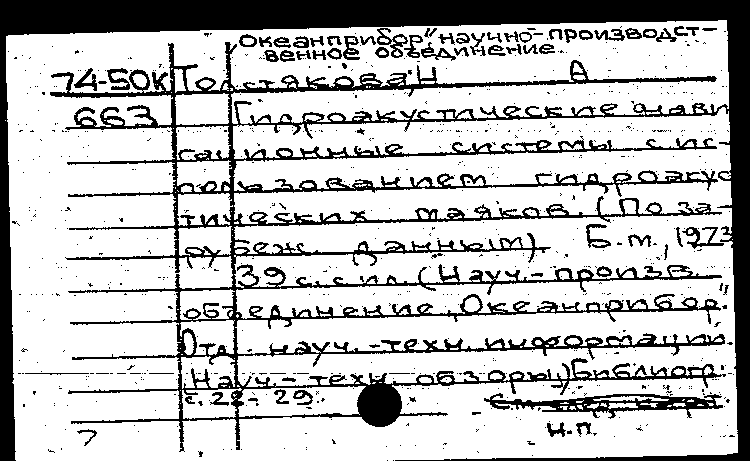 „Океанприбор" научно-производст-
венное объединение.
74-50К Толстякова, Н А
663 Гидроакустические нави
гационные системы с ис-
пользованием гидроакус
тических маяков. (По за-
рубеж. данным). Б.м., 1973
39 с. с ил. (Науч.-произв.
объединение „Океанприбор."
Отд. науч.-техн. информации.
Науч.-техн. обзоры.) Библиогр.:
с. 28-29.
См. след. карт.
н.п.
7